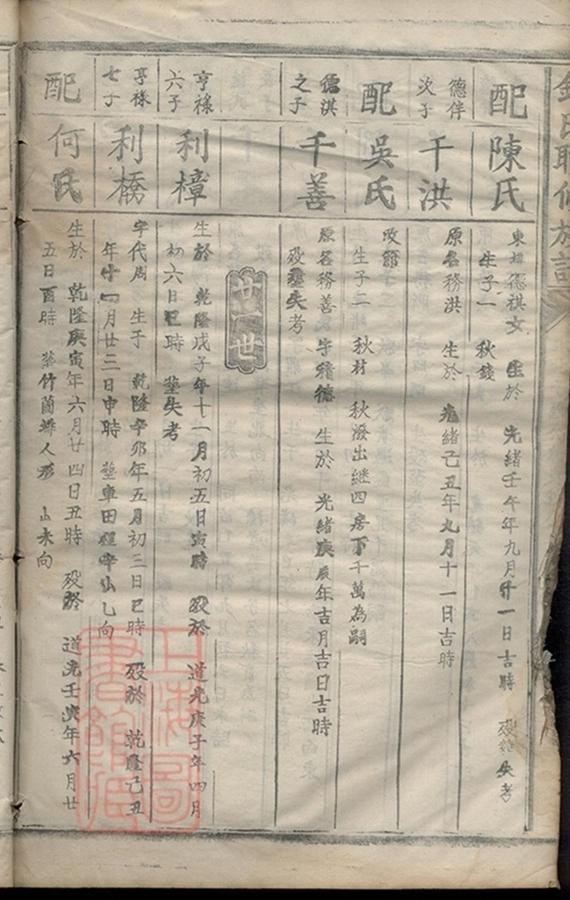 配 陳氏
東坝德祺女 生於 光緒壬午年九月廿一日吉時 殁葬失考
生子一 秋錢
德伴
次子
千洪
原名務洪 生於 光緒己丑年九月十一日吉時
配 吳氏
改節
生子二 秋村 秋潑出継四房下千萬為嗣
德淇
之子
千善
原名務善 字積德 生於 光緒庚辰年吉月吉日吉時
殁塟失考
廿一世
亨祿
六子
利樟
生於 乾隆戊子年十一月初五日寅時 殁於 道光庚子年四月
初六日巳時 塟失考
亨祿
七子
利橋
字代周 生于 乾隆辛卯年五月初三日巳時 殁於 乾隆己丑
年十一月廿三日申時 塟車田 辛山乙向
配 何氏
生於 乾隆庚寅年六月廿四日丑時 殁於 道光壬寅年六月廿
五日酉時 塟竹蘭 人形 山未向
上海圖
書館藏